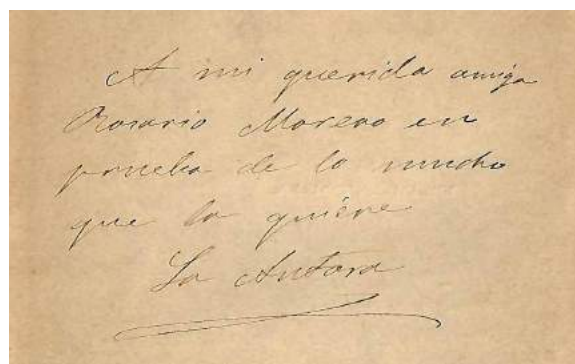 A mi querida amiga
Rosario Moreno en
prueba de lo mucho
que la quiere
La Autora